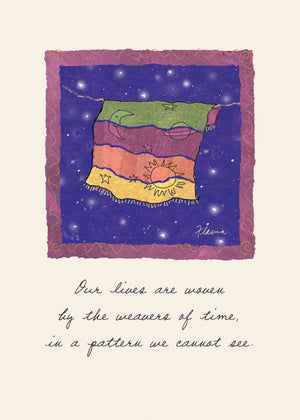 Flavia
Our lives are woven
by the weavers of time,
in a pattern we cannot see.